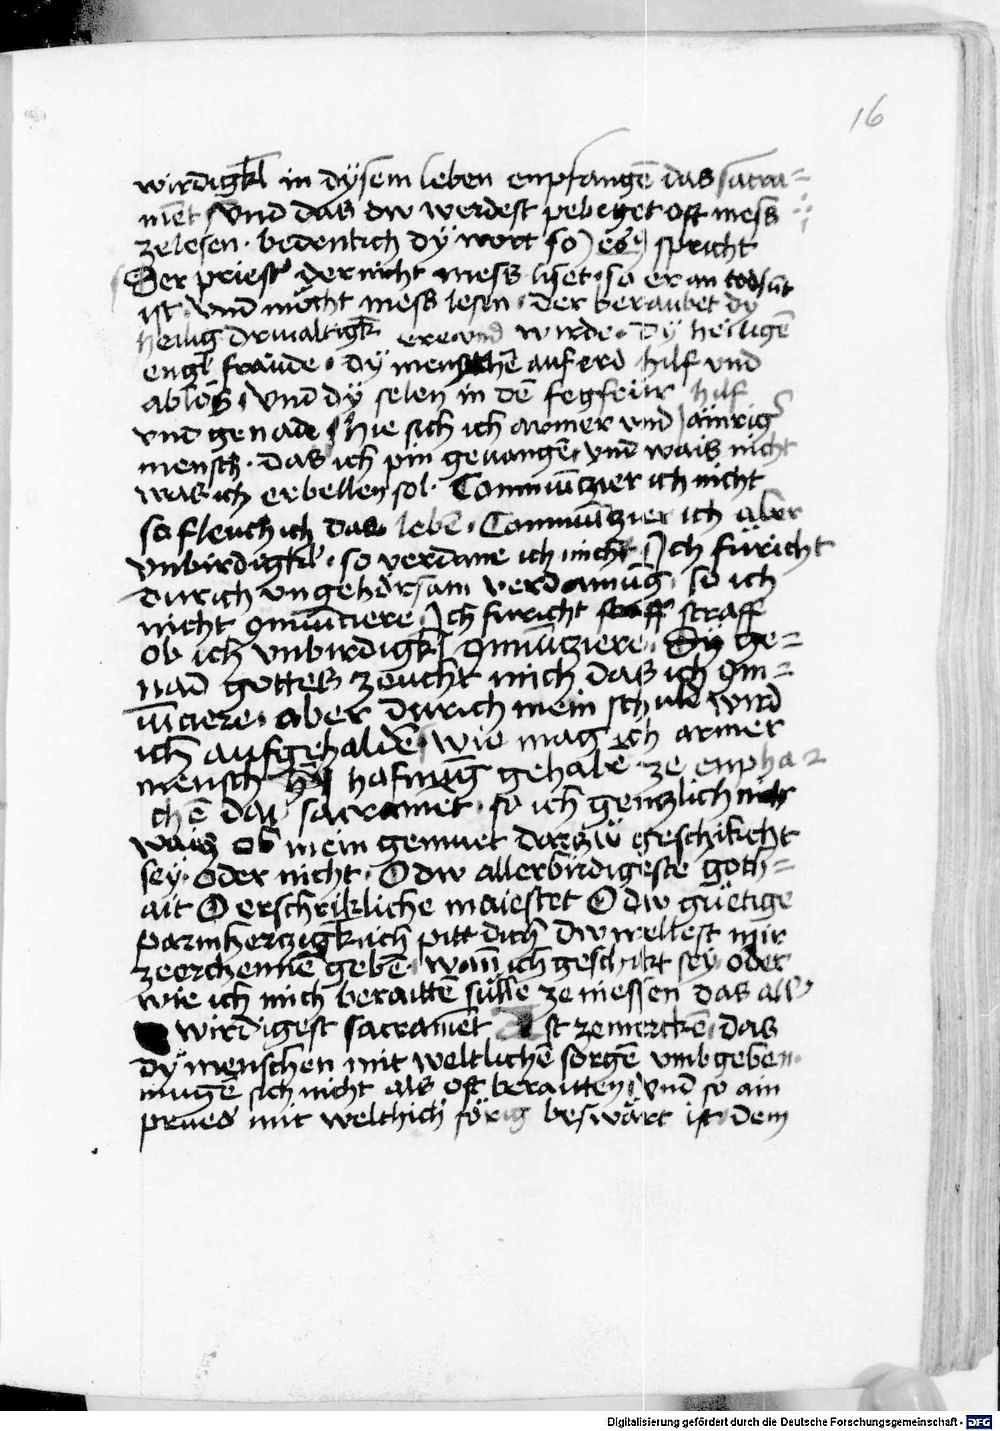 16
wirdigkl in dysem leben enpfangē das sacra=
mēt vnd das dw werdest pebeget oft mess
zelesen · bedentlich dy wort so er spricht
Der priest der nicht mess liset · so er an todsūt
ist · vnd möcht mess lesen · der beraubet dy
heilig drivaltigk ere vnd wirde · dy heiligē
engl fräude · dy menschē auf erd hilf vnd
ablös · vnd dy selen in dē fegfeür hilf
vnd genade hie sich ich armer vnd ainrig
mensch · das ich pin geuangē vnd wais nicht
was ich erbellen sol · Commūczier ich nicht
so fleuch ich das lebē · Commūczier ich aber
vnbirdigkl · so verdame ich mich · Ich füricht
durich vngehörsam verdamūg · so ich
nicht 9mūciere · Ich furicht straff
ob ich vnbirdigkl 9mūcziere · Dÿ ge=
nad gottes zeucht mich das ich 9m=
ūciere · aber durich mein schuld wird
ich aufgehaldē wie mag ich armer
mensch hafnūg gehabē ze enpha
chē das sacramēt · so ich genczlich nicht
wais ob mein gemuet darzü geschikcht
sey · oder nicht · O dw allerbirdigeste goth=
ait O erschrikliche maiestet O dw güetige
parmherczigk ich pitt dich dw wellest mir
zeerchennē gebē · wan ich geschikt sey oder
wie ich mich beraittē sülle ze niessen das all
wirdigest sacramēt Ist zemerckē das
dy menschen mit weltlichē sorgē vmbgeben
mugē sich nicht als oft beraitten vnd so ain
prues mit weltlich sörig beswärt ist dem
Digitalisierung gefördert durch die Deutsche Forschungsgemeinschaft - DFG